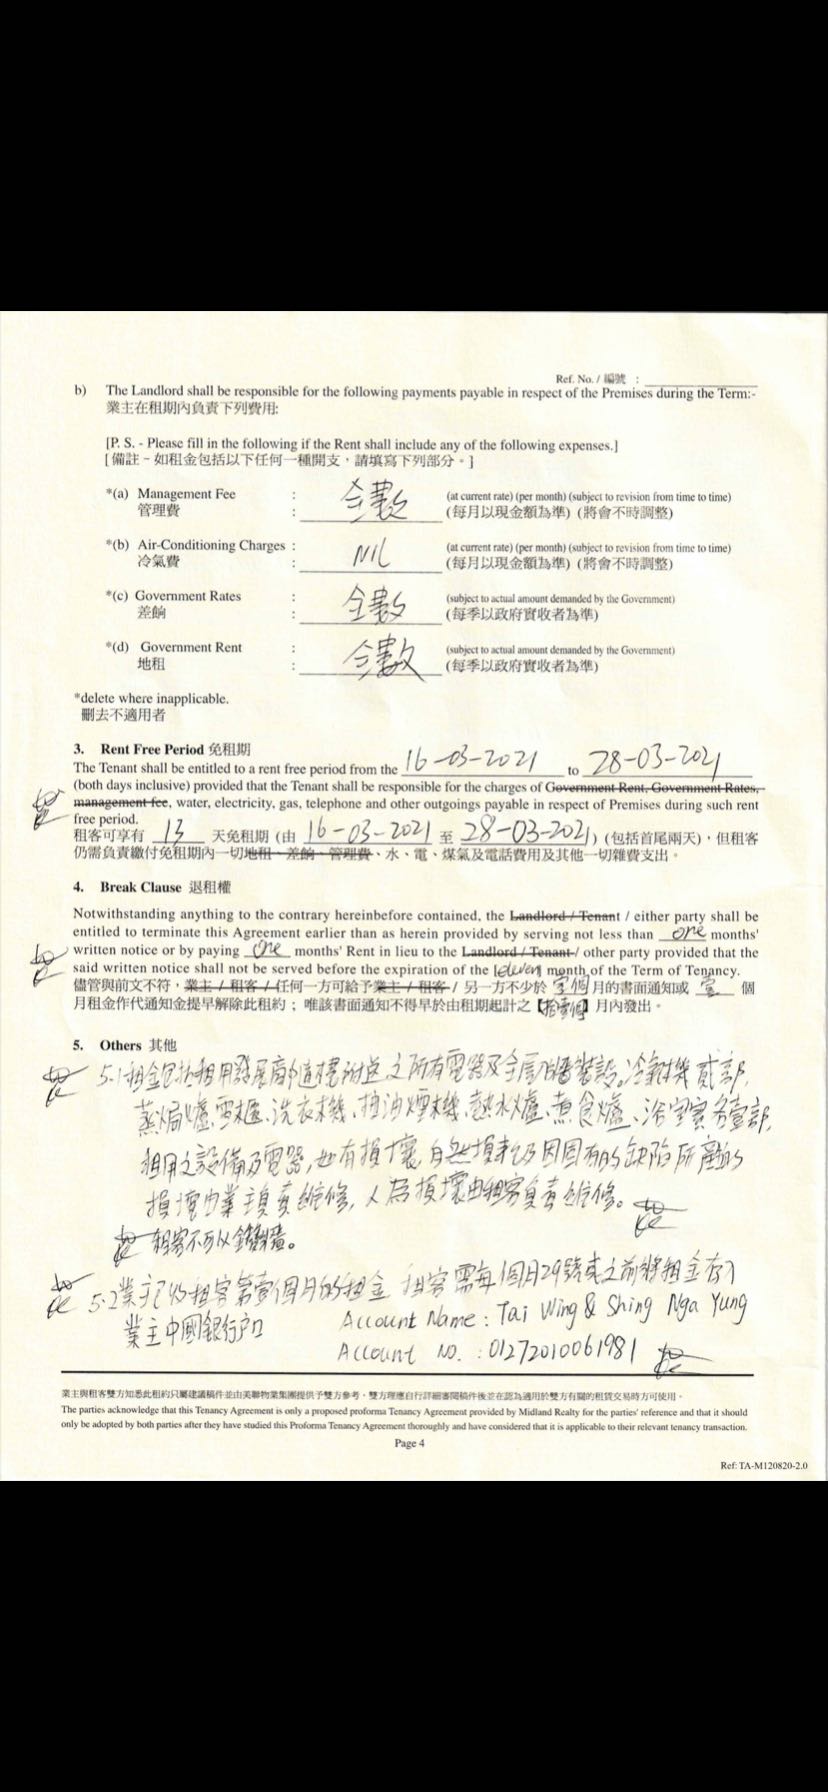 Ref. No. / 編號 :
b) The Landlord shall be responsible for the following payments payable in respect of the Premises during the Term:-
業主在租期內負責下列費用:
[P. S. - Please fill in the following if the Rent shall include any of the following expenses.]
[ 備註 - 如租金包括以下任何一種開支，請填寫下列部分。]
*(a) Management Fee : 全數 (at current rate) (per month) (subject to revision from time to time)
管理費 : (每月以現金額為準) (將會不時調整)
*(b) Air-Conditioning Charges : NIL (at current rate) (per month) (subject to revision from time to time)
冷氣費 : (每月以現金額為準) (將會不時調整)
*(c) Government Rates : 全數 (subject to actual amount demanded by the Government)
差餉 : (每季以政府實收者為準)
*(d) Government Rent : 全數 (subject to actual amount demanded by the Government)
地租 : (每季以政府實收者為準)
*delete where inapplicable.
刪去不適用者
3. Rent Free Period 免租期
The Tenant shall be entitled to a rent free period from the 16-03-2021 to 28-03-2021
(both days inclusive) provided that the Tenant shall be responsible for the charges of Government Rent, Government Rates,
management fee, water, electricity, gas, telephone and other outgoings payable in respect of Premises during such rent
free period.
租客可享有 13 天免租期 (由 16-03-2021 至 28-03-2021) (包括首尾兩天)，但租客
仍需負責繳付免租期內一切地租、差餉、管理費、水、電、煤氣及電話費用及其他一切雜費支出。
4. Break Clause 退租權
Notwithstanding anything to the contrary hereinbefore contained, the Landlord / Tenant / either party shall be
entitled to terminate this Agreement earlier than as herein provided by serving not less than one months'
written notice or by paying one months' Rent in lieu to the Landlord / Tenant / other party provided that the
said written notice shall not be served before the expiration of the eleven month of the Term of Tenancy.
儘管與前文不符，業主 / 租客 / 任何一方可給予業主 / 租客 / 另一方不少於 壹個 月的書面通知或 壹 個
月租金作代通知金提早解除此租約；唯該書面通知不得早於由租期起計之【拾壹個】月內發出。
5. Others 其他
5.1 租金包括租用發展商隨樓附送之所有電器及全屋裝設。冷氣機貳部,
蒸焗爐、雪櫃、洗衣機、抽油煙機、熱水爐、煮食爐、浴室寶各壹部,
租用之設備及電器,如有損壞,自然損耗及因固有的缺陷所產生的
損壞由業主負責維修,人為損壞由租客負責維修。
租客不可以鑽牆。
5.2 業主已收租客第壹個月的租金 租客需每個月29號或之前將租金存入
業主中國銀行戶口 Account Name : Tai Wing & Shing Nga Yung
Account NO. : 01272010061981
業主與租客雙方知悉此租約只屬建議稿件並由美聯物業集團提供予雙方參考，雙方理應自行詳細審閱稿件後並在認為適用於雙方有關的租賃交易時方可使用。
The parties acknowledge that this Tenancy Agreement is only a proposed proforma Tenancy Agreement provided by Midland Realty for the parties' reference and that it should
only be adopted by both parties after they have studied this Proforma Tenancy Agreement thoroughly and have considered that it is applicable to their relevant tenancy transaction.
Page 4
Ref: TA-M120820-2.0